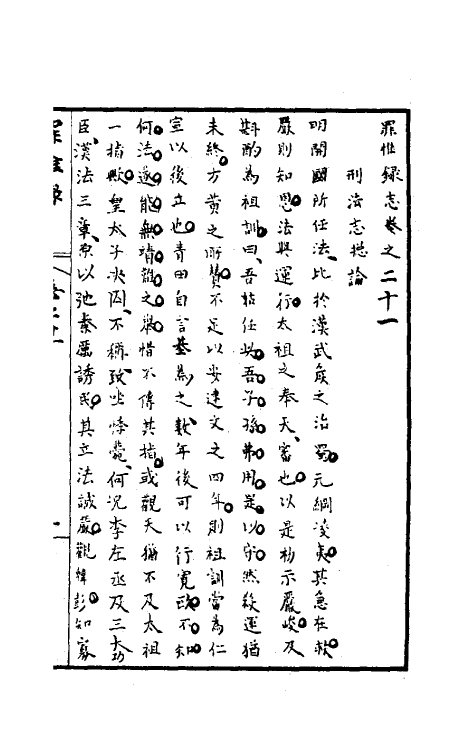 罪惟錄志卷之二十一
刑法志總論
明開國所任法比於漢武矦之治蜀元綱淩夷其急在救
嚴則知恩法與運行太祖之奉天審也以是初示嚴峻及
斟酌為祖訓曰吾姑任此吾子孫弗用是以守然綏運猶
未終方黃之所贊不足以安建文之四年則祖訓當為仁
宣以後立也青田自言基為之數年後可以行寬政不知
何法遂能無靖難之舉惜不傳其指或觀天猶不及太祖
一指歟皇太子决囚不稱致坐悸薨何况李左丞及三大功
臣漢法三章原以弛秦厲誘民其立法誠嚴觀韓彭知寡